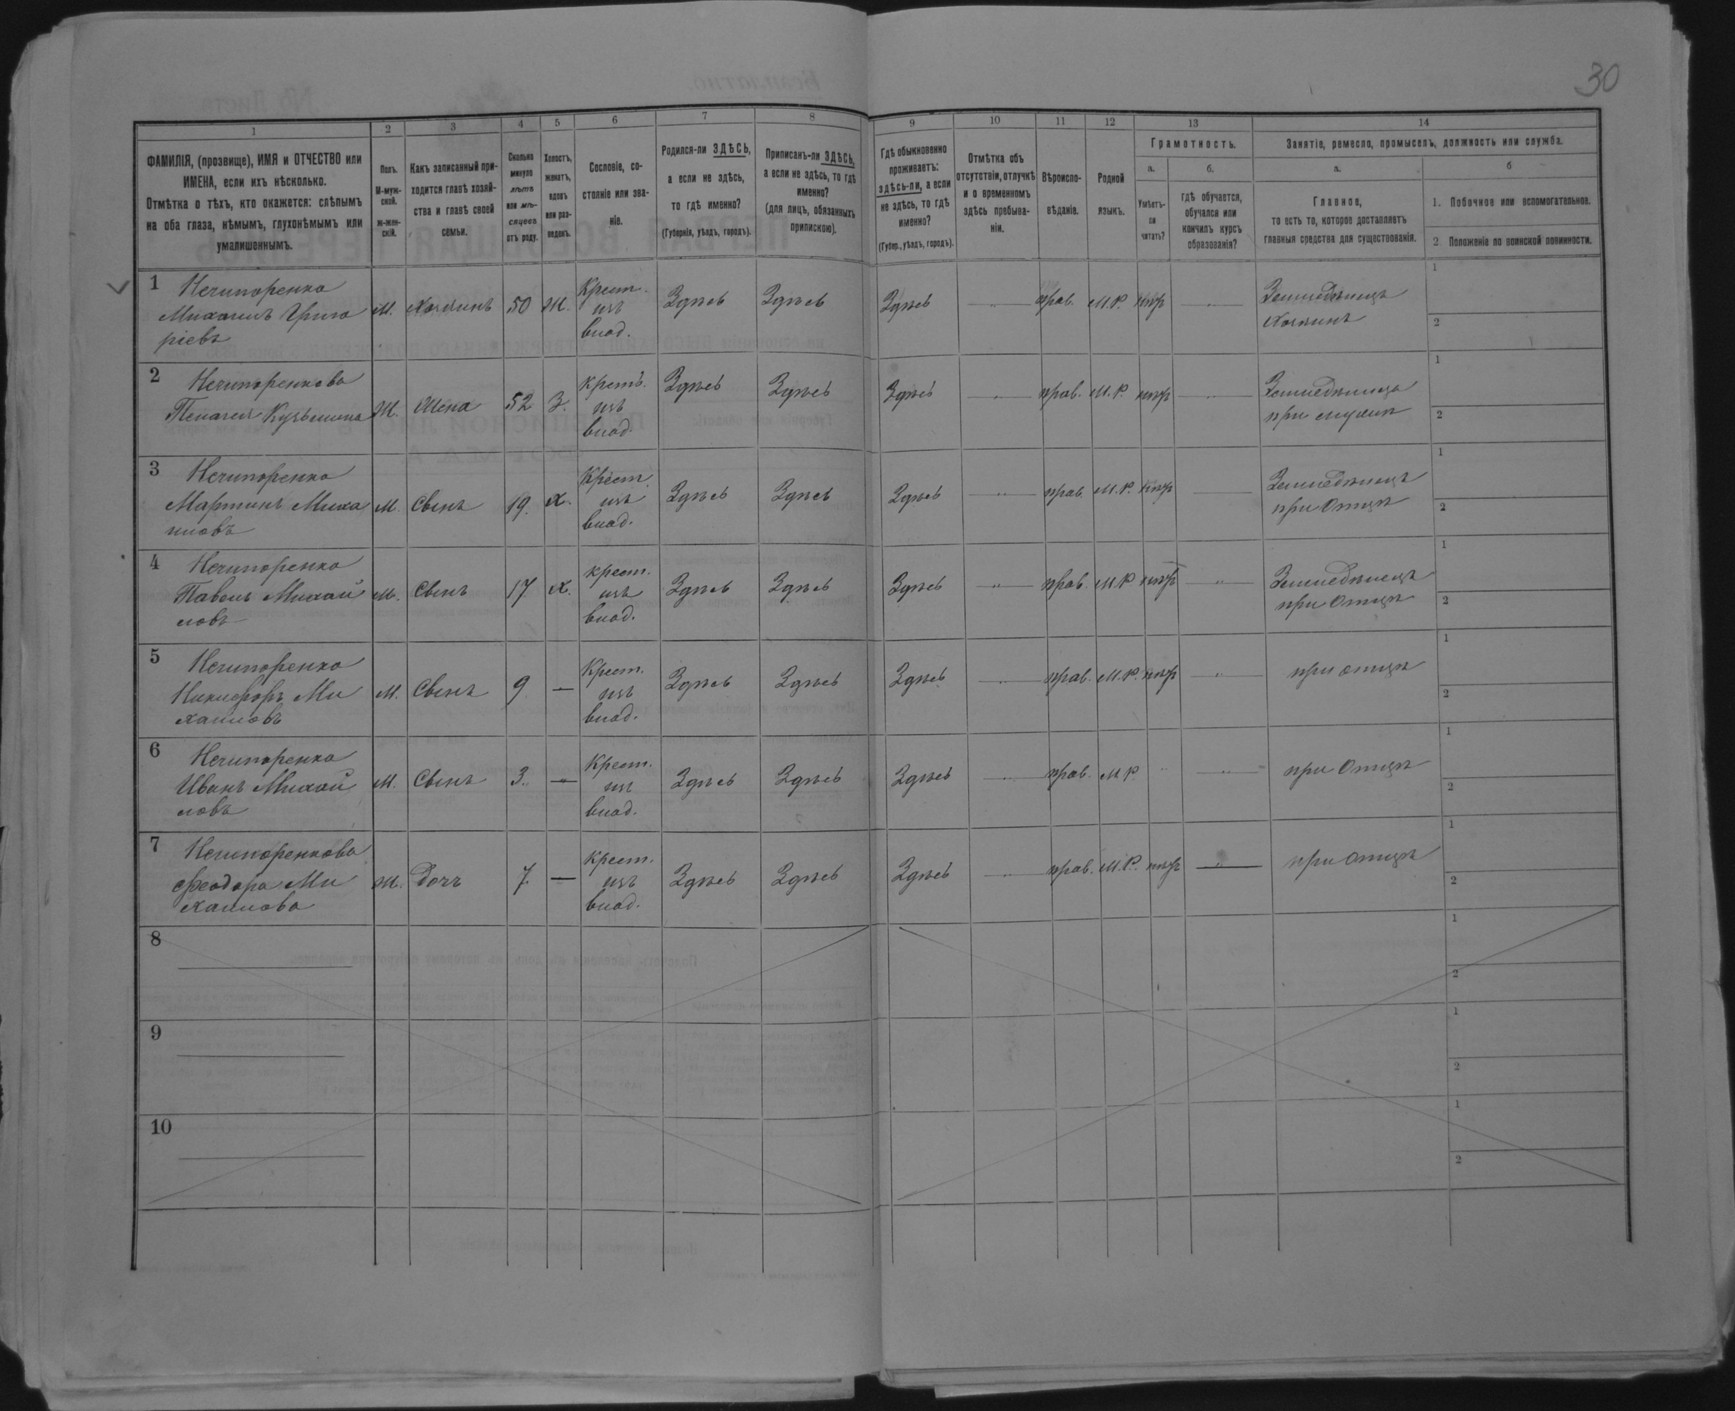 30
1 2 3 4 5 6 7 8 9 10 11 12 13 14
ФАМИЛІЯ, (прозвище), ИМЯ и ОТЧЕСТВО или
ИМЕНА, если ихъ нѣсколько.
Отмѣтка о тѣхъ, кто окажется: слѣпымъ
на оба глаза, нѣмымъ, глухонѣмымъ или
умалишеннымъ.
Полъ.
М-муж-
ской.
ж-жен-
скій.
Какъ записанный при-
ходится главѣ хозяй-
ства и главѣ своей
семьи.
Сколько
минуло
лѣтъ
или мѣ-
сяцевъ
отъ роду.
Холостъ,
женатъ,
вдовъ
или раз-
веденъ.
Сословіе, со-
стояніе или зва-
ніе.
Родился-ли ЗДѢСЬ,
а если не здѣсь,
то гдѣ именно?
(Губернія, уѣздъ, городъ).
Приписанъ-ли ЗДѢСЬ,
а если не здѣсь, то гдѣ
именно?
(для лицъ, обязанныхъ
припискою).
Гдѣ обыкновенно
проживаетъ:
здѣсь-ли, а если
не здѣсь, то гдѣ
именно?
(Губер., уѣздъ, городъ).
Отмѣтка объ
отсутствіи, отлучкѣ
и о временномъ
здѣсь пребыва-
ніи.
Вѣроиспо-
вѣданіе.
Родной
языкъ.
Грамотность.
а. б.
Умѣетъ-
ли
читать?
гдѣ обучается,
обучался или
кончилъ курсъ
образованія?
Занятіе, ремесло, промыселъ, должность или служба.
а. б
Главное,
то есть то, которое доставляетъ
главныя средства для существованія.
1. Побочное или вспомогательное.
2. Положеніе по воинской повинности.
1 Нечипоренко
Михаилъ Григо
ріевъ
М. Хозяинъ 50 Ж. Крест.
изъ
влад.
Здѣсь Здѣсь Здѣсь прав. М.Р. нѣтр
Земледѣлецъ
Хозяинъ
1
2
2 Нечипоренкова
Пелагея Кузьмина
Ж. Жена 52 З. Крест.
изъ
влад.
Здѣсь Здѣсь Здѣсь прав. М.Р
Земледѣлица
при мужѣ
1
2
3 Нечипоренко
Мартинъ Миха
иловъ
М. Сынъ 19. Х. Крест.
изъ
влад.
Здѣсь Здѣсь Здѣсь прав. М.Р.
Земледѣлецъ
при Отцѣ
1
2
4 Нечипоренко
Павелъ Михай
ловъ
М. Сынъ 17 Х. крест.
изъ
влад.
Здѣсь Здѣсь Здѣсь прав. М.Р
Земледѣлецъ
при Отцѣ
1
2
5 Нечипоренко
Никифоръ Ми
хаиловъ
М. Сынъ 9 — Крест.
изъ
влад.
Здѣсь Здѣсь Здѣсь прав. М.Р.
при отцѣ
1
2
6 Нечипоренко
Иванъ Михай
ловъ
М. Сынъ 3. — Крест.
изъ
влад.
Здѣсь Здѣсь Здѣсь прав. М.Р
при Отцѣ
1
2
7 Нечипоренкова
Феодора Ми
хаилова
Ж. Дочъ 7. — Крест.
изъ
влад.
Здѣсь Здѣсь Здѣсь прав. М.Р.
при Отцѣ
1
2
8
1
2
9
1
2
10
1
2